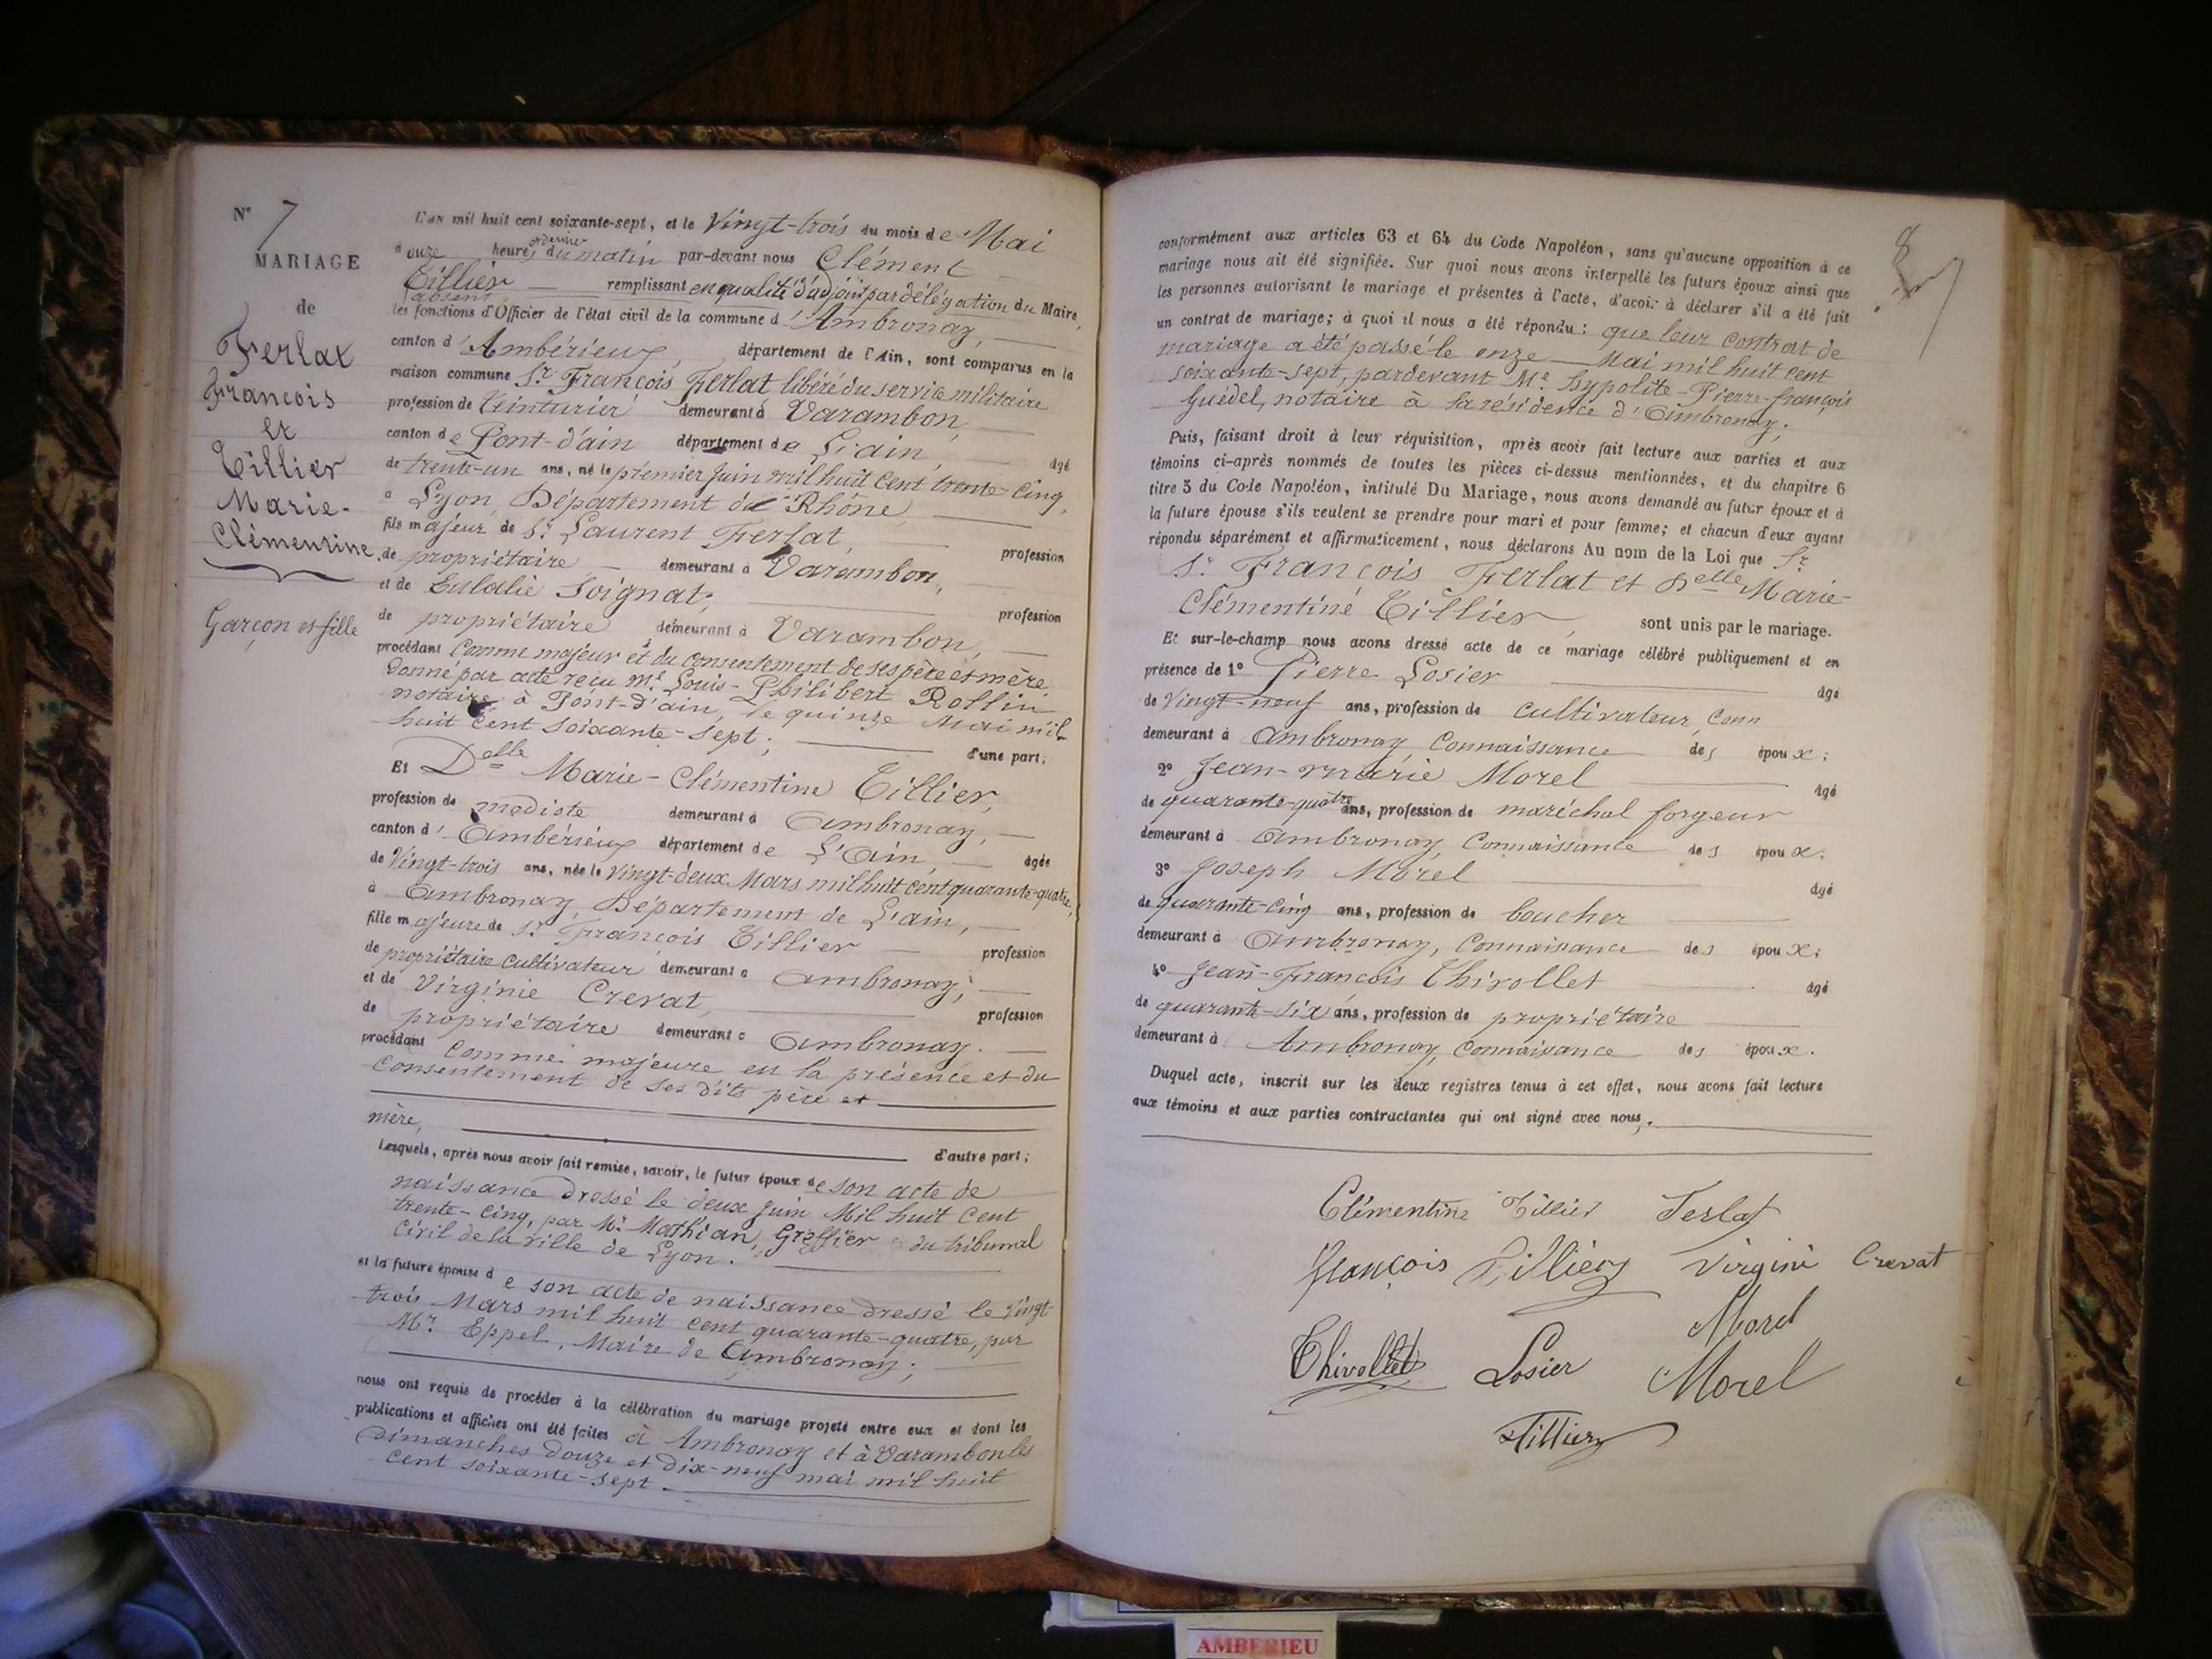 N° 7
MARIAGE
de
Ferlat
François
et
Tillier
Marie-
Clémentine
Garçon et fille
L'AN mil huit cent soixante-sept, et le Vingt-trois du mois de Mai
à onze heures du matin par-devant nous Clément
Tillier remplissant en qualité d'adjoint par délégation du Maire
absent
les fonctions d'Officier de l'état civil de la commune d'Ambronay,
canton d'Ambérieux, département de l'Ain, sont comparus en la
maison commune Sr François Ferlat libéré du service militaire
profession de teinturier demeurant à Varambon,
canton de Pont-d'ain département de L'ain, âgé
de trente-un ans, né le premier Juin mil huit cent trente-cinq,
à Lyon, Département du Rhône,
fils majeur de Sr Laurent Ferlat, profession
de propriétaire demeurant à Varambon,
et de Eulalie Soignat, profession
de propriétaire demeurant à Varambon,
procédant comme majeur et du consentement de ses père et mère
donné par acte reçu Me Louis-Philibert Rollin
notaire à Pont-d'ain, le quinze Mai mil
huit cent soixante-sept; d'une part;
Et Delle Marie-Clémentine Tillier,
profession de modiste demeurant à Ambronay,
canton d'Ambérieux département de L'Ain, âgée
de Vingt-trois ans, née le Vingt-deux Mars mil huit cent quarante-quatre,
à Ambronay, Département de L'ain,
fille majeure de Sr François Tillier profession
de propriétaire cultivateur demeurant à Ambronay;
et de Virginie Crevat, profession
de propriétaire demeurant à Ambronay.
procédant comme majeure en la présence et du
consentement de ses dits père et
mère, d'autre part;
Lesquels, après nous avoir fait remise, savoir, le futur époux de son acte de
naissance dressé le deux Juin Mil huit cent
trente-cinq, par Mr Mathian, Greffier du tribunal
Civil de la ville de Lyon.
et la future épouse de son acte de naissance dressé le vingt
trois Mars mil huit cent quarante-quatre, par
Mr Eppel, Maire de Ambronay;
nous ont requis de procéder à la célébration du mariage projeté entre eux et dont les
publications et affiches ont été faites à Ambronay et à Varambon les
Dimanches douze et dix-neuf mai mil huit
cent soixante-sept.
8
conformément aux articles 63 et 64 du Code Napoléon, sans qu'aucune opposition à ce
mariage nous ait été signifiée. Sur quoi nous avons interpellé les futurs époux ainsi que
les personnes autorisant le mariage et présentes à l'acte, d'avoir à déclarer s'il a été fait
un contrat de mariage; à quoi il nous a été répondu: que leur contrat de
mariage a été passé le onze Mai mil huit cent
soixante-sept, pardevant Me hypolite-Pierre-françois
Guédel, notaire à la résidence d'Ambronay;
Puis, faisant droit à leur réquisition, après avoir fait lecture aux parties et aux
témoins ci-après nommés de toutes les pièces ci-dessus mentionnées, et du chapitre 6
titre 5 du Code Napoléon, intitulé Du Mariage, nous avons demandé au futur époux et à
la future épouse s'ils veulent se prendre pour mari et pour femme; et chacun d'eux ayant
répondu séparément et affirmativement, nous déclarons Au nom de la Loi que Sr
Sr François Ferlat et Delle Marie-
Clémentine Tillier, sont unis par le mariage.
Et sur-le-champ nous avons dressé acte de ce mariage célébré publiquement et en
présence de 1° Pierre Losier âgé
de Vingt-neuf ans, profession de cultivateur, conn
demeurant à Ambronay Connaissance des époux;
2° Jean-marie Morel âgé
de quarante-quatre ans, profession de maréchal forgeur
demeurant à Ambronay, Connaissance des époux;
3° Joseph Morel âgé
de quarante-cinq ans, profession de boucher
demeurant à Ambronay, Connaissance des époux;
4° Jean-François Thivollet âgé
de quarante-six ans, profession de propriétaire
demeurant à Ambronay, connaissance des époux.
Duquel acte, inscrit sur les deux registres tenus à cet effet, nous avons fait lecture
aux témoins et aux parties contractantes qui ont signé avec nous.
Clémentine Tillier Ferlat
François Tillier Virginie Crevat
Morel
Thivollet Losier Morel
Tillier
AMBERIEU